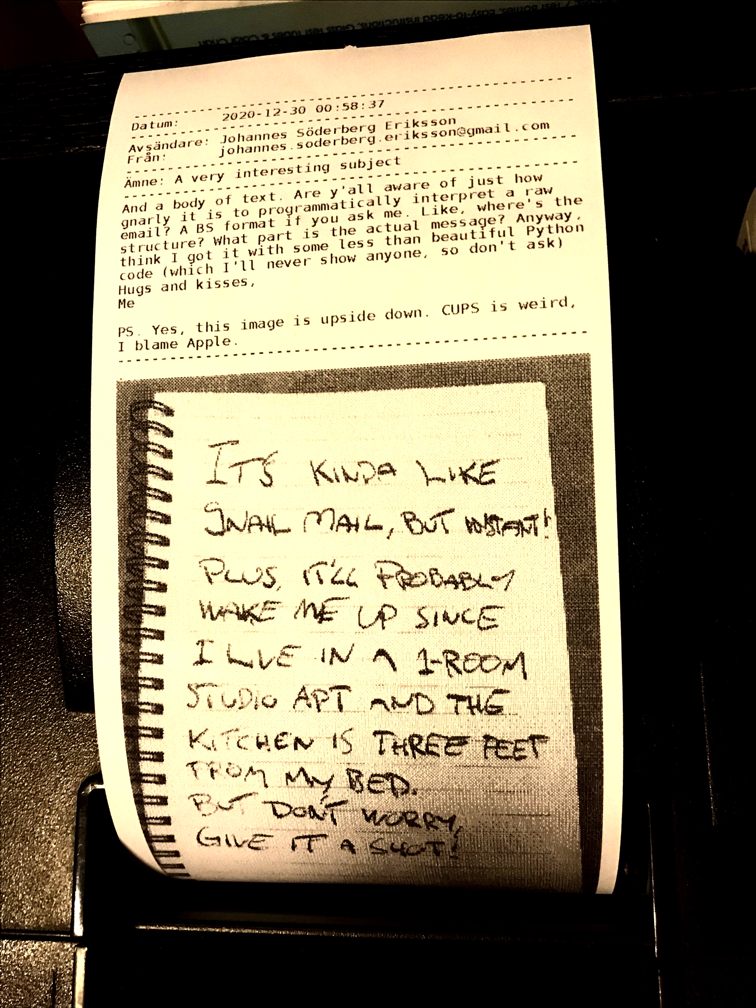 Datum: 2020-12-30 00:58:37
Avsändare: Johannes Söderberg Eriksson
Från: johannes.soderberg.eriksson@gmail.com
Ämne: A very interesting subject
And a body of text. Are y'all aware of just how
gnarly it is to programmatically interpret a raw
email? A BS format if you ask me. Like, where's the
structure? What part is the actual message? Anyway,
think I got it with some less than beautiful Python
code (which I'll never show anyone, so don't ask)
Hugs and kisses,
Me
PS. Yes, this image is upside down. CUPS is weird,
I blame Apple.
IT'S KINDA LIKE
SNAIL MAIL, BUT INSTANT!
PLUS, IT'LL PROBABLY
WAKE ME UP SINCE
I LIVE IN A 1-ROOM
STUDIO APT AND THE
KITCHEN IS THREE FEET
FROM MY BED.
BUT DON'T WORRY,
GIVE IT A SHOT!